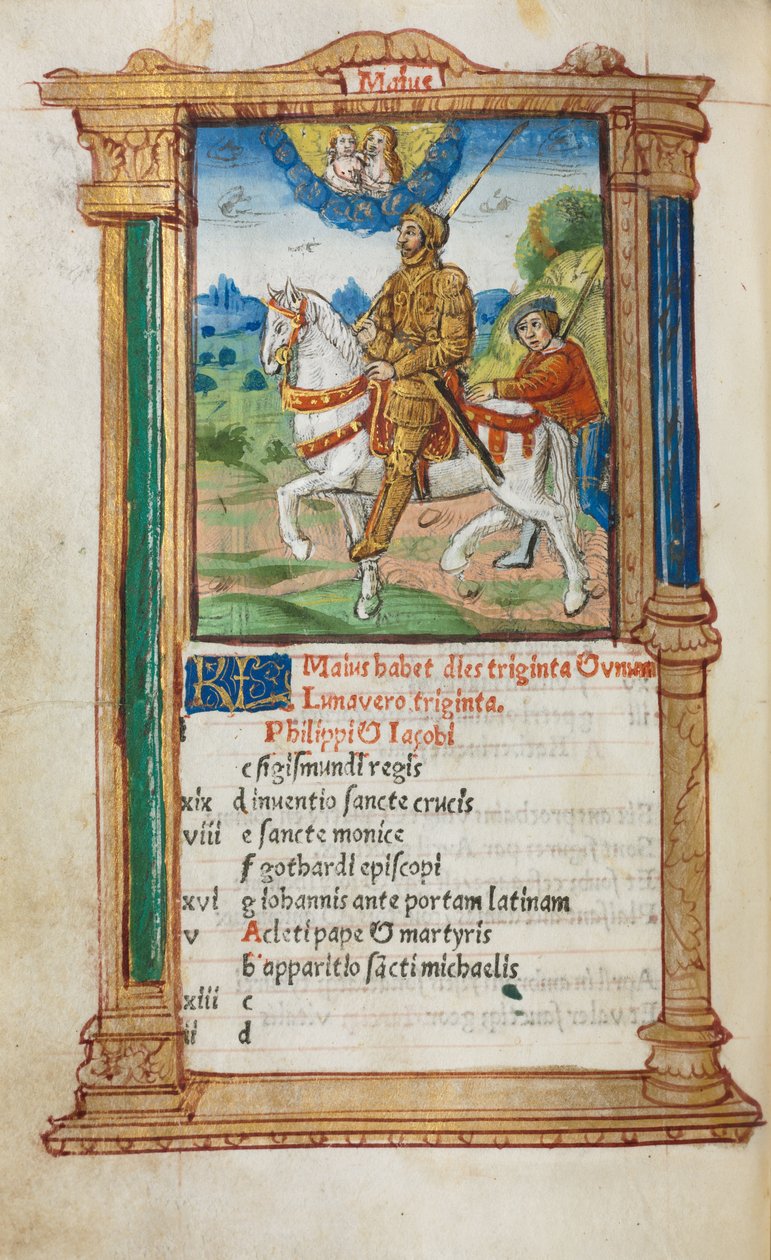 Maius
KL Maius habet dies triginta & unum
Luna vero triginta.
i Philippi & Iacobi
c sigismundi regis
xix d inventio sancte crucis
viii e sancte monice
f gothardi episcopi
xvi g iohannis ante portam latinam
v A cleti pape & martyris
b apparitio sancti michaelis
xiii c
ii d